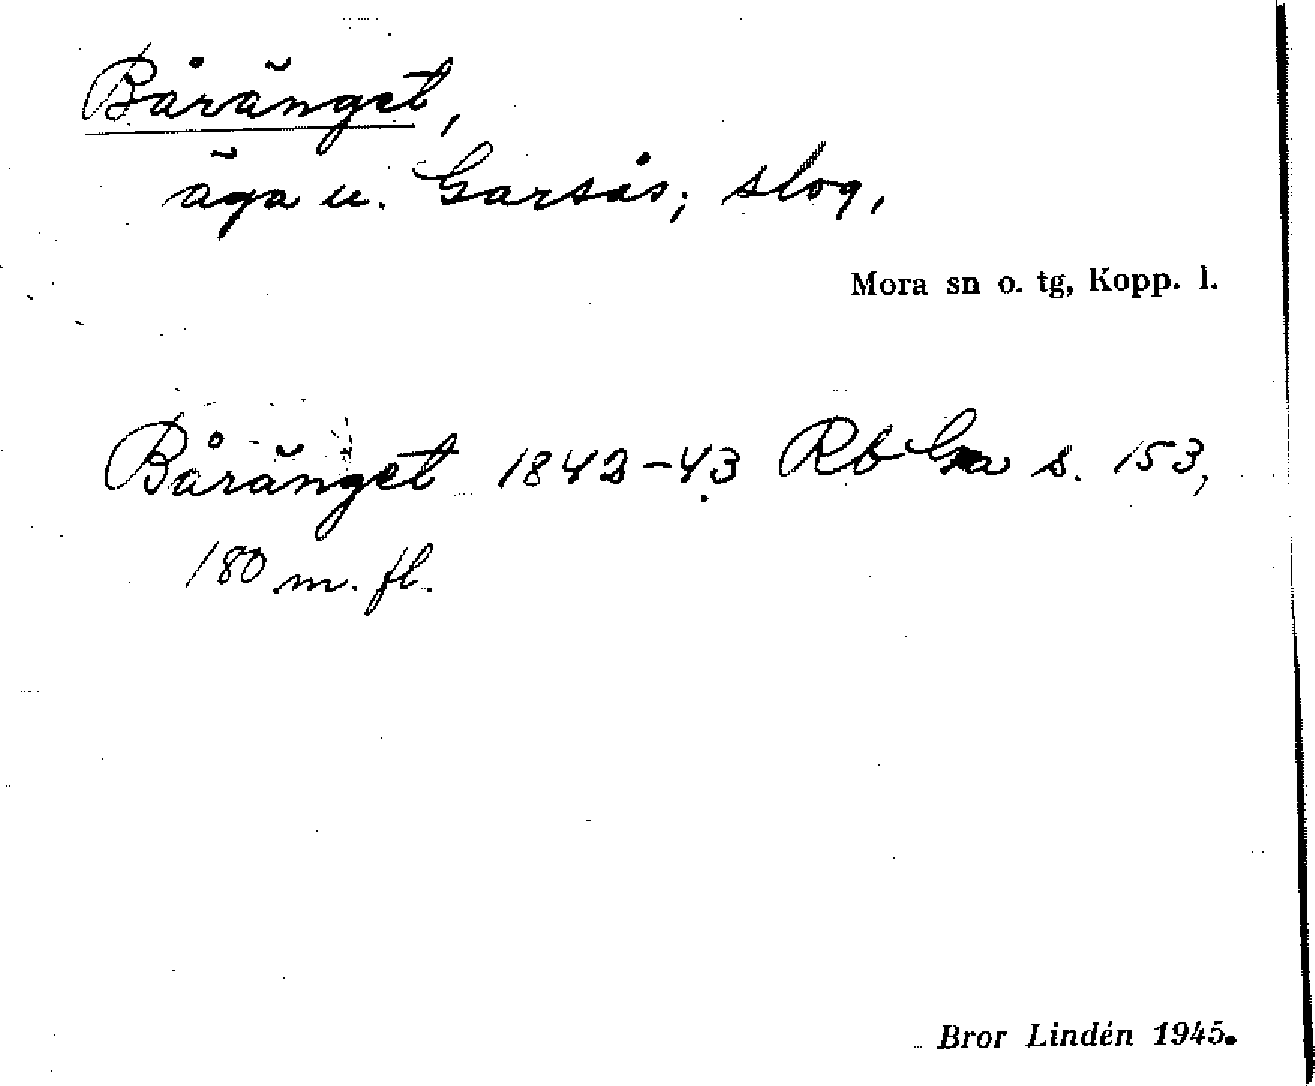 Båränget,
äga u. Garsås; slog,
Mora sn o. tg, Kopp. l.
Båränget 1842-43 Rb Ga s. 153,
180 m. fl.
Bror Lindén 1945.